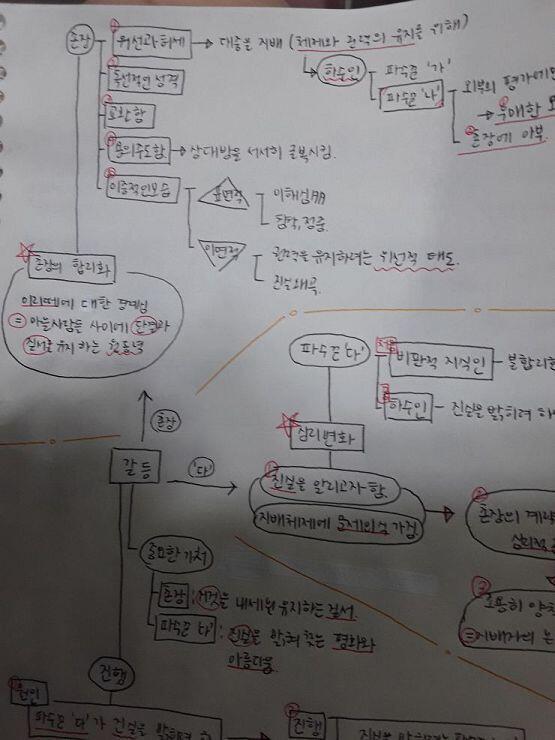 촌장
① 위선과 허세 → 대중을 지배 (체제와 권력의 유지를 위해)
하수인
파수꾼 '가'
파수꾼 '나'
외부의 평가에
① 우매한
② 촌장에 아부.
② 독선적인 성격
③ 교활함
④ 용의주도함 → 상대방을 서서히 굴복시킴.
⑤ 이중적인 모습
표면적
이해심
침착, 정중
이면적
권력을 유지하려는 위선적 태도.
진실 왜곡.
☆ 촌장의 합리화
이리떼에 대한 경계심
= 마을사람들 사이에 단결과
질서를 유지하는 원동력
파수꾼 '다'
비판적 지식인 - 불합리한
하수인 - 진실을 밝히려
☆ 심리변화
① 진실을 알리고자 함.
지배체제에 문제의식 가짐.
② 촌장의
심리적
③ 조용히
= 지배자의
촌장
갈등
'다'
중요한 가치
촌장 : 거짓을 내세워 유지하는 질서.
파수꾼 '다' : 진실을 밝혀 찾는 평화와
아름다움.
진행
① 원인
파수꾼 '다'가 진실을 밝히려
② 진행